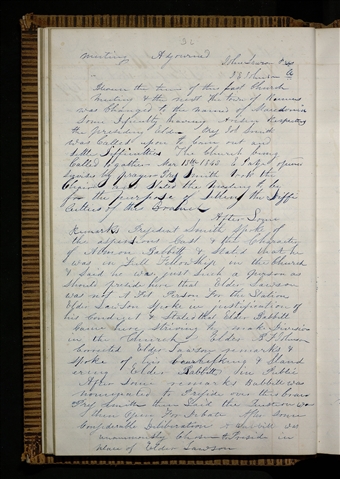 36
Meeting Adjourned
John Lawson Pres
B F Johnson Clk
During the time of the past Church
Meeting & the next the town of Ramus
was Changed to the name of Macedonia
Some difficulty having Arisen Respecting
the presiding Elder Hyrum Smith
was Called upon to Come out and
settle difficulties The Church being
Called together Mar 15th 1843 & Patriarch opened
by prayer Smith took the
Chair and Stated the meeting to be
for the purpose of Settling the diffi
culties of this Branch
After Some
Remarks President Smith Spoke of
the aspersions Cast on the Character
of Almon Babbitt & Stated that he
was in full Fellowship in the Church
& Said he was just such a person as
should preside here that Elder Lawson
was not A fit Person For the Station
Elder Lawson Spoke in justification of
his Conduct & Stated that Elder Babbitt
Came here Striving to make division
in the Church Elder B F Johnson
Corrected Elder Lawsons remarks &
Spoke of his & Sland
ering Elder Babbitt in Public
After Some remarks Babbitt was
nominated to Preside over this Branch
Smith then Said the Question was
then Open For debate After some
Considerable Deliberation Babbitt was
unanimously Chosen to Preside in
place of Elder Lawson